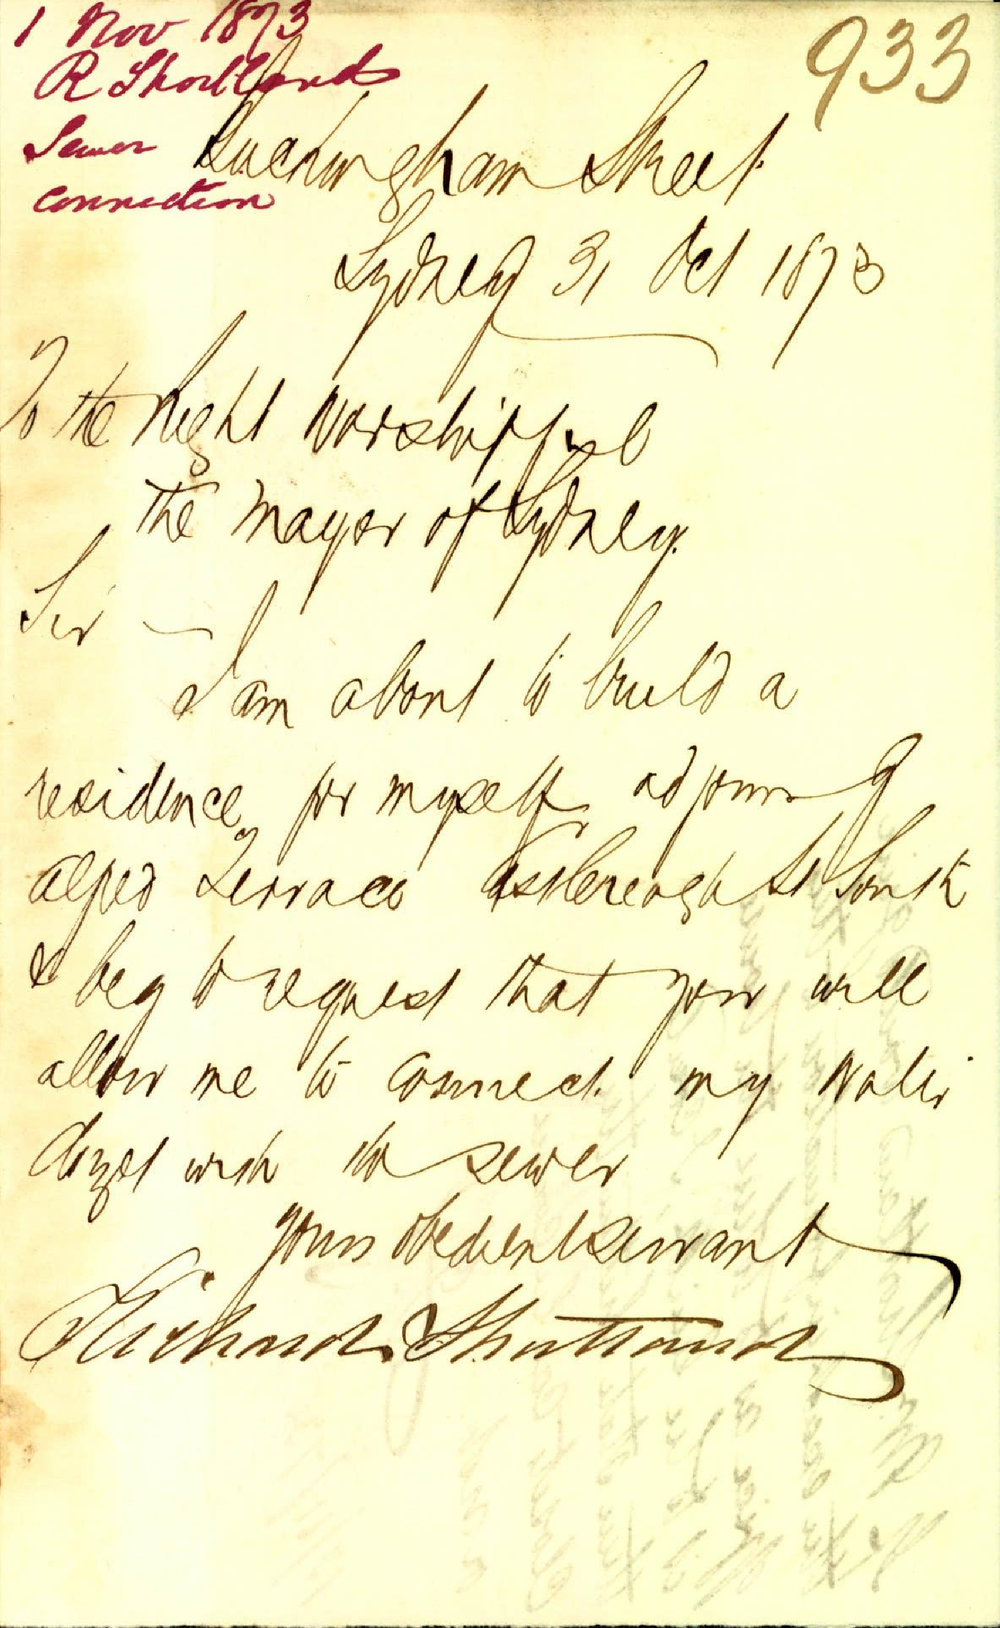 1 Nov 1873
R Shortland
Sewer
Connection
933
Buckingham Street
Sydney 31 Oct 1873
To the Right Worshipful
the Mayor of Sydney.
Sir
I am about to build a
residence for myself adjoining
Alfred Terrace Castlereagh St South
& beg to request that you will
allow me to connect my Water
Closet with the sewer
Yours obedient servant
Richard Shortland